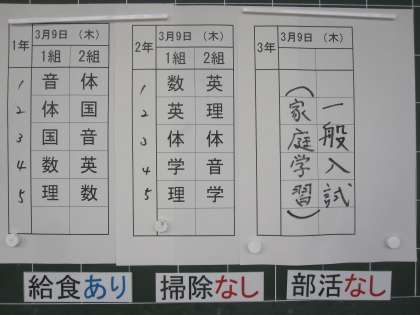 1年 3月9日 (木)
1組 2組
1 音 体
2 体 国
3 国 音
4 数 英
5 理 数
2年 3月9日 (木)
1組 2組
1 数 英
2 英 理
3 体 体
4 学 音
5 理 学
3年 3月9日 (木)
一般入試
(家庭学習)
給食あり
掃除なし
部活なし